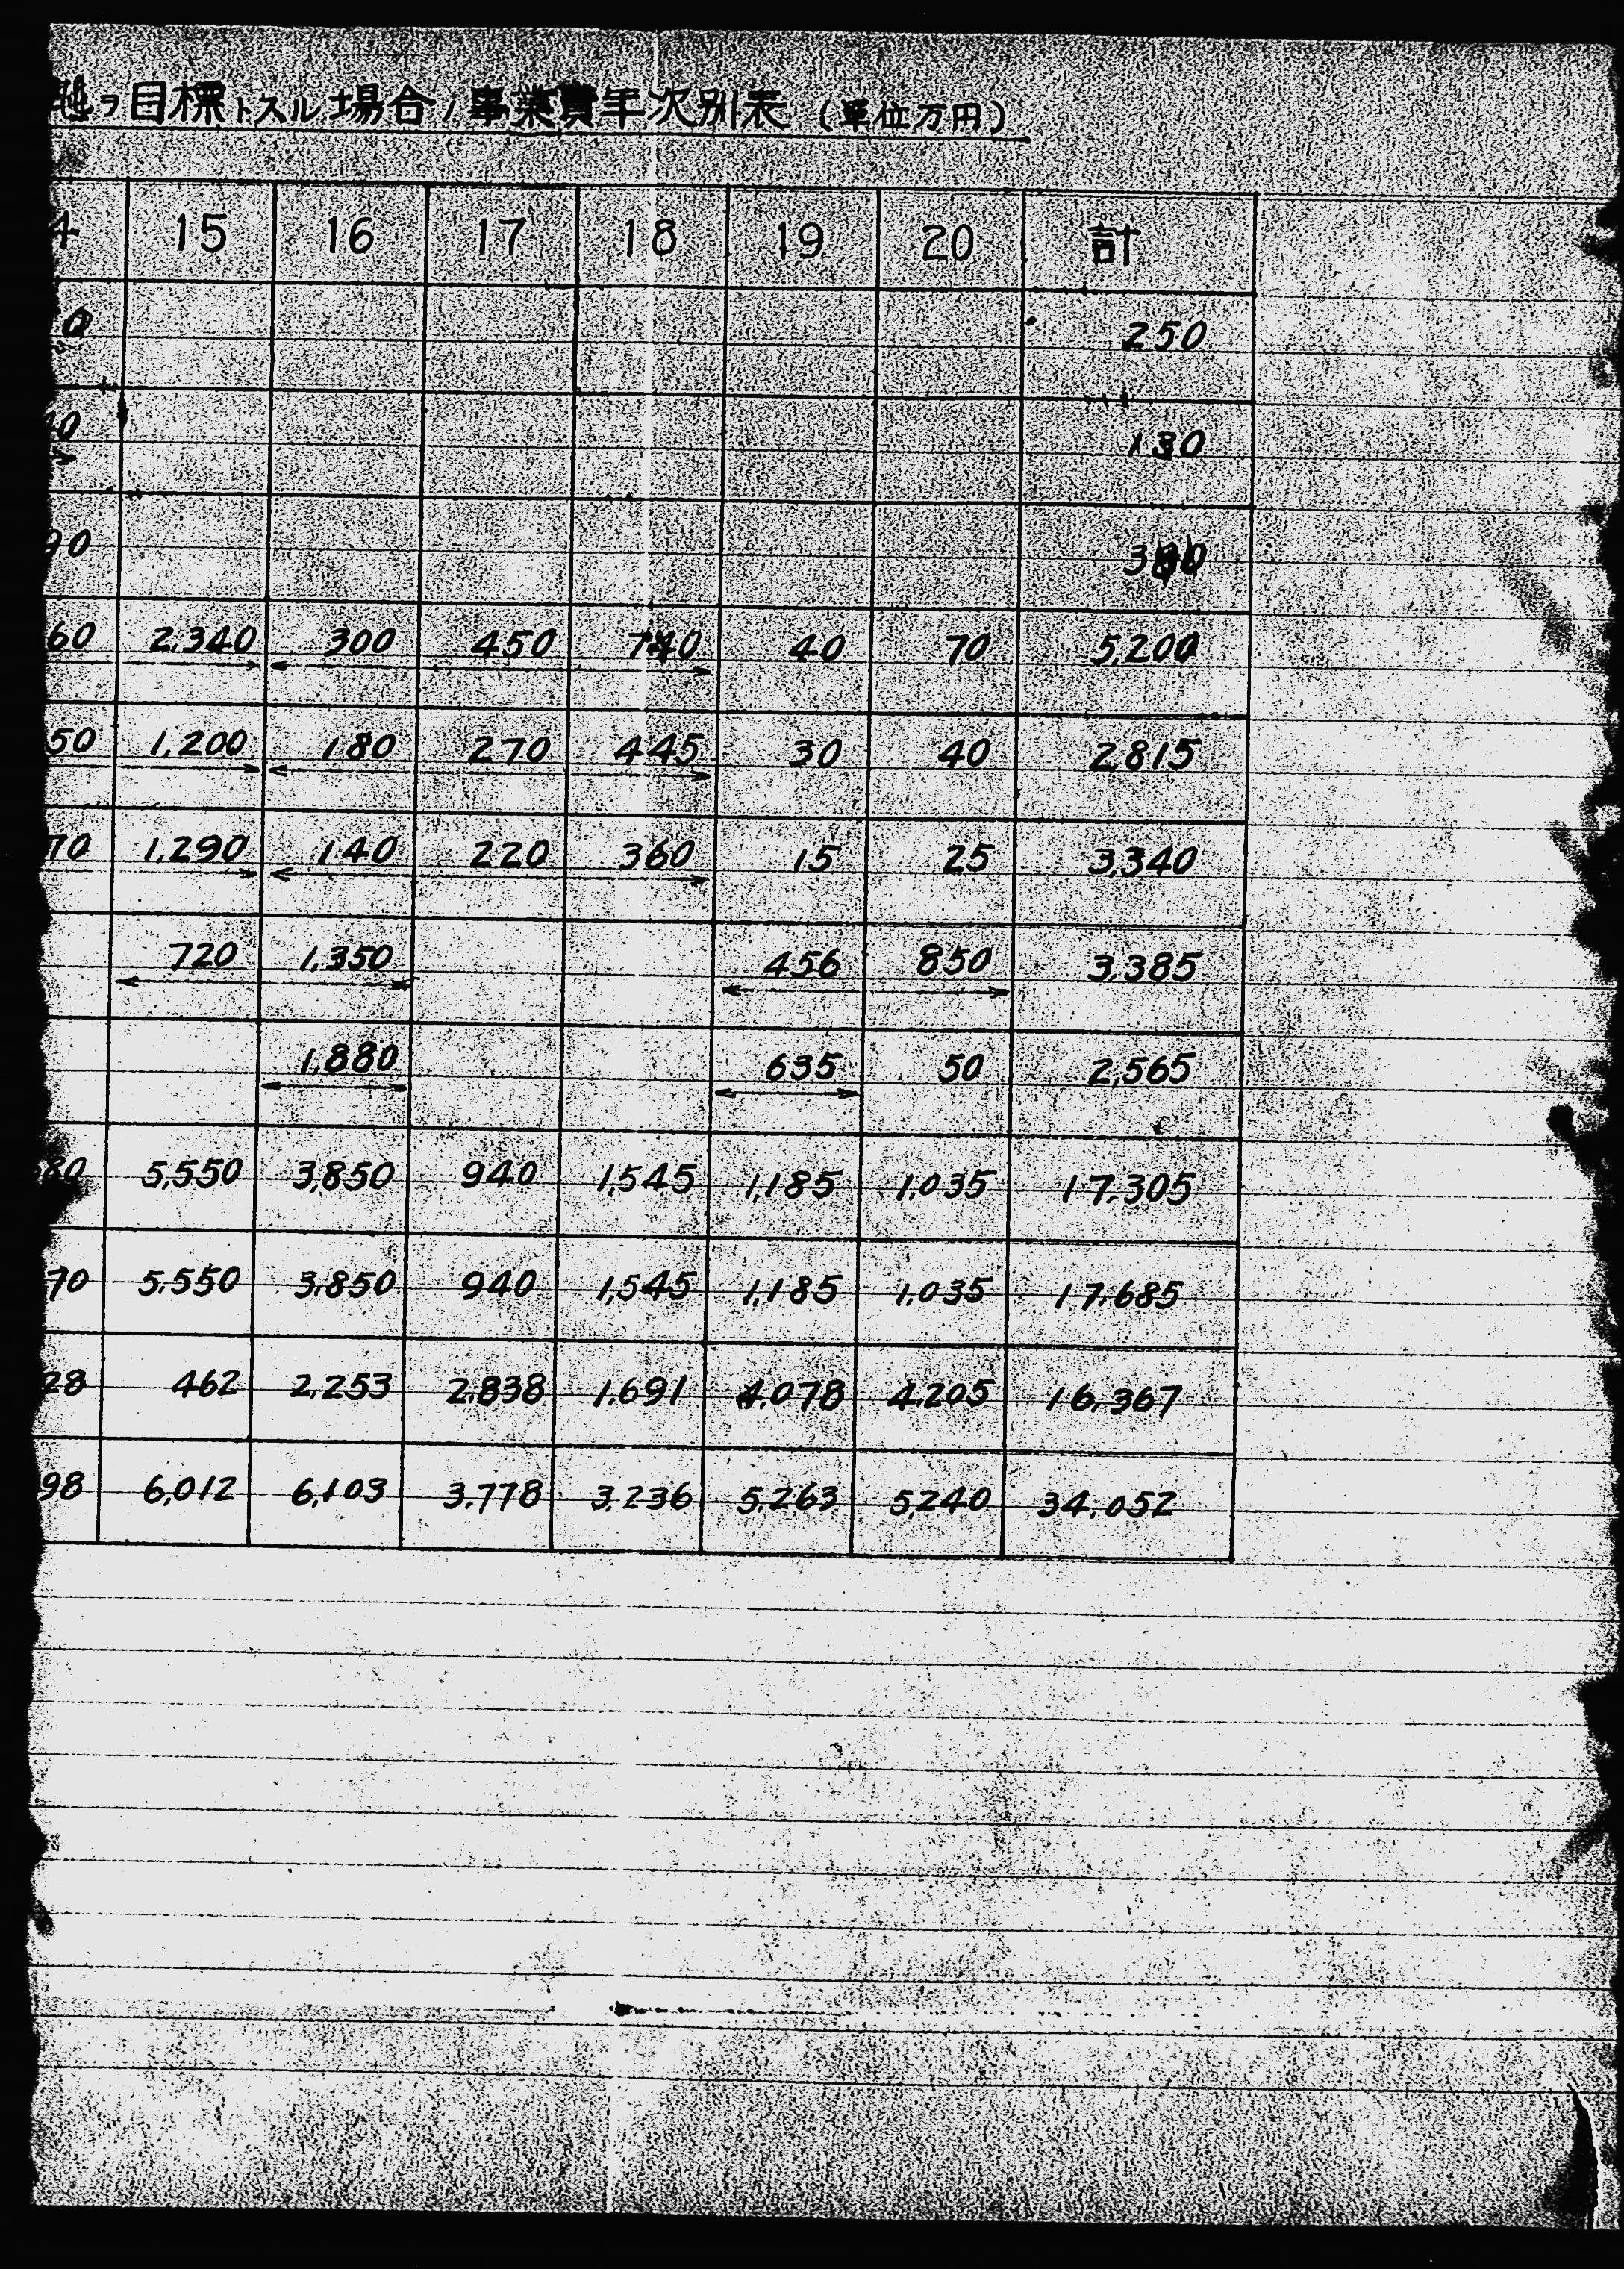 ヲ目標トスル場合ノ事業費年次別表 (単位万円)
4 15 16 17 18 19 20 計
0 250
0 130
90
60 2,340 300 450 740 40 70 5,200
50 1,200 180 270 445 30 40 2,815
70 1,290 140 220 360 15 25 3,340
720 1,350 456 850 3,385
1,880 635 50 2,565
80 5,550 3,850 940 1,545 1,185 1,035 17,305
70 5,550 3,850 940 1,545 1,185 1,035 17,685
28 462 2,253 2,838 1,691 4,078 4,205 16,367
98 6,012 6,103 3,778 3,236 5,263 5,240 34,052